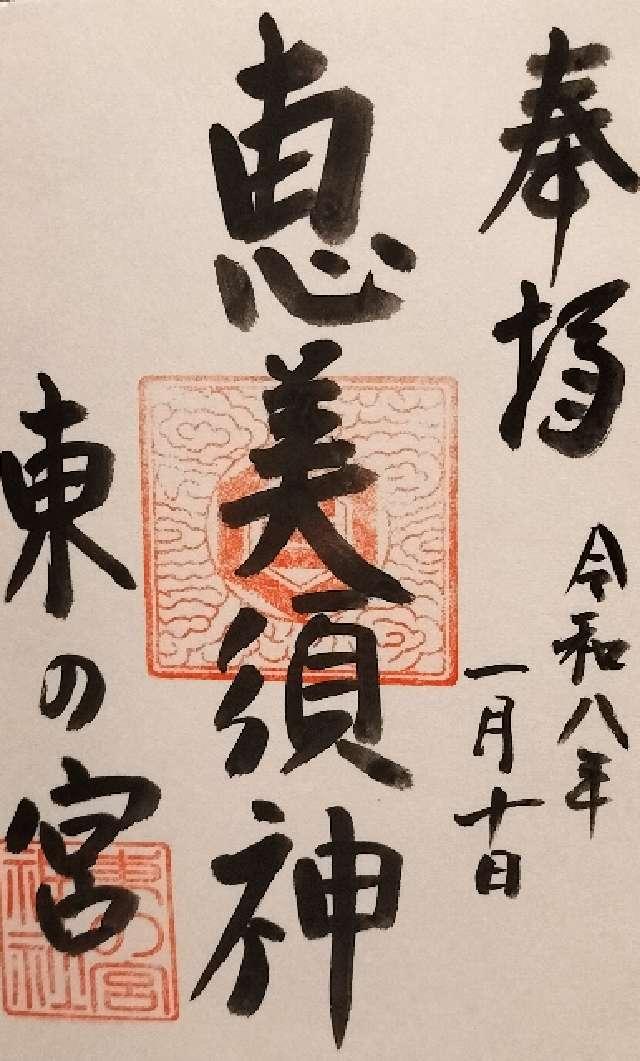 奉拝
令和八年
一月十日
恵美須神
東の宮
東の宮
神社